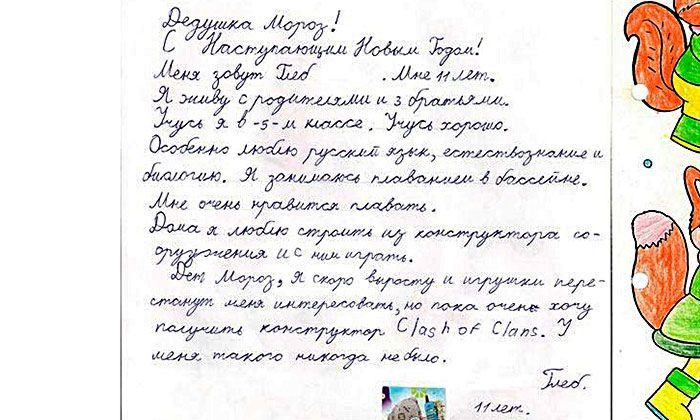 Дедушка Мороз!
С Наступающим Новым Годом!
Меня зовут Глеб . Мне 11 лет.
Я живу с родителями и 3 братьями.
Учусь я в -5-м классе. Учусь хорошо.
Особенно люблю русский язык, естествознание и
биологию. Я занимаюсь плаванием в бассейне.
Мне очень нравится плавать.
Дома я люблю строить из конструктора со-
оружения и с ним играть.
Дед Мороз, я скоро вырасту и игрушки пере-
станут меня интересовать, но пока очень хочу
получить конструктор Clash of Clans. У
меня такого никогда не было.
Глеб.
11 лет.